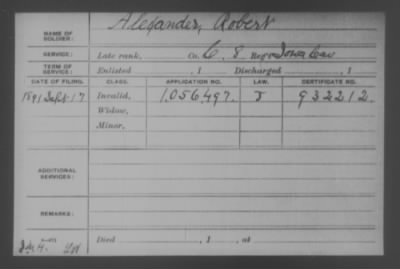 Alexander, Robert
NAME OF SOLDIER:
SERVICE: Late rank, Co. C. 8. Reg't Iowa Cav
TERM OF SERVICE: Enlisted , 1 Discharged , 1
DATE OF FILING. CLASS. APPLICATION NO. LAW. CERTIFICATE NO.
1891 Sept 17 Invalid, 1.056.497. J 932212.
Widow,
Minor,
ADDITIONAL SERVICES:
REMARKS:
Died , 1 , at